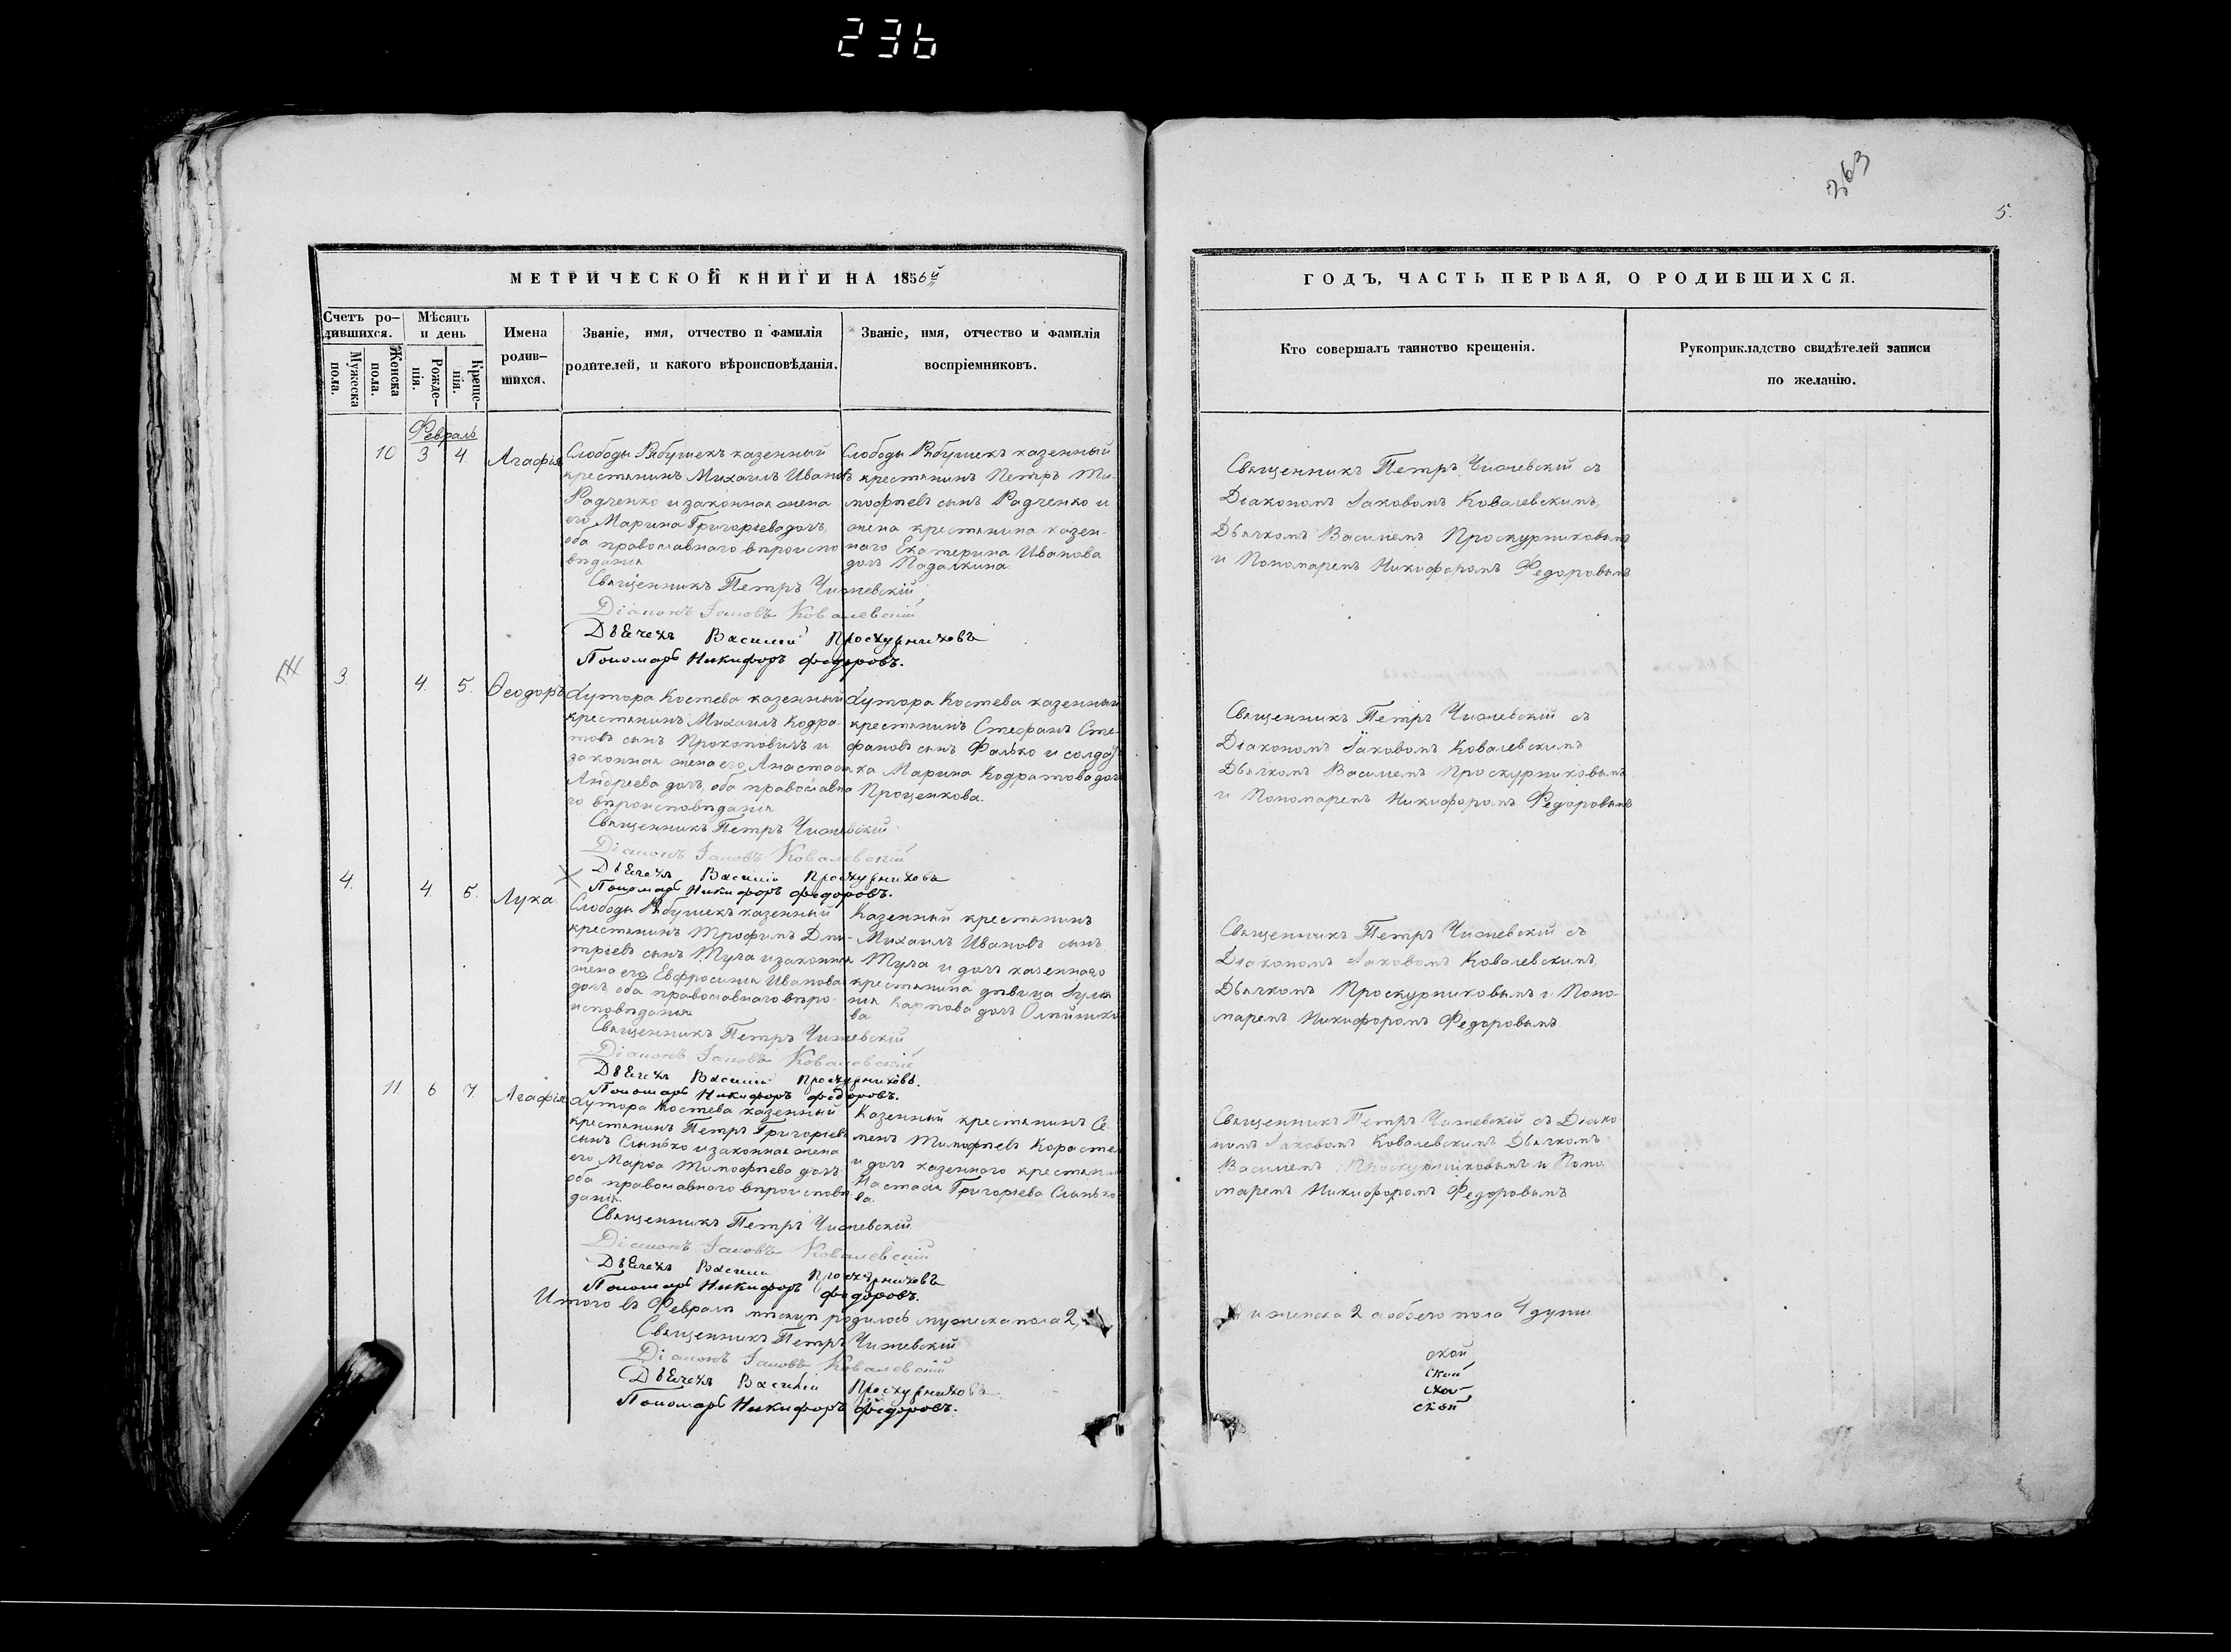 236
363
5.
МЕТРИЧЕСКОЙ КНИГИ НА 1856й
ГОДЪ, ЧАСТЬ ПЕРВАЯ, О РОДИВШИХСЯ.
Счетъ ро-
дившихся.
Мужеска пола.
Женска пола.
Мѣсяцъ
и день
Рожде-
нія.
Креще-
нія.
Имена
родив-
шихся.
Званіе, имя, отчество и фамилія
родителей, и какого вѣроисповѣданія.
Званіе, имя, отчество и фамилія
воспріемниковъ.
Кто совершалъ таинство крещенія.
Рукоприкладство свидѣтелей записи
по желанію.
Февраль
10 3 4 Агафія
Слободы Рябушекъ казенный
крестьянинъ Михаилъ Ивановъ
Радченко и законная жена
его Марина Григорьева дочь,
оба православнаго вѣроиспо
вѣданія
Слободы Рябушекъ казенный
крестьянинъ Петръ Ти-
мофѣевъ сынъ Радченко и
жена крестьянина казен-
наго Екатерина Иванова
дочь Падалкина.
Священникъ Петръ Чижевскій съ
Діакономъ Іаковомъ Ковалевскимъ,
Дьячкомъ Василіемъ Проскурниковымъ
и Пономаремъ Никифоромъ Федоровымъ
Священникъ Петръ Чижевскій
Діаконъ Іаковъ Ковалевскій
Дьячекъ Василій Проскурниковъ
Пономарь Никифоръ Федоровъ.
3. 4. 5. Ѳеодоръ
Хутора Костева казенный
крестьянинъ Михаилъ Кодра-
товъ сынъ Прокоповичъ и
законная жена его Анастасія
Андреева дочь, оба православна
го вѣроисповѣданія
Хутора Костева казенный
крестьянинъ Стефанъ Сте-
фановъ сынъ Фалько и солдат
ка Марина Кодратова дочь
Проценкова.
Священникъ Петръ Чижевскій съ
Діакономъ Іаковомъ Ковалевскимъ
Дьячкомъ Василіемъ Проскурниковымъ
и Пономаремъ Никифоромъ Федоровымъ
Священникъ Петръ Чижевскій
Діаконъ Іаковъ Ковалевскій
Дьячекъ Василій Проскурниковъ
Пономарь Никифоръ Федоровъ.
4. 4 5. Лука
Слободы Рябушекъ казенный
крестьянинъ Трофимъ Дми-
тріевъ сынъ Туча и законная
жена его Евфросинія Иванова
дочь оба православнаго вѣро-
исповѣданія
Казенный крестьянинъ
Михаилъ Ивановъ сынъ
Туча и дочь казеннаго
крестьянина дѣвица Іулія
нія Карпова дочь Олейнико
ва.
Священникъ Петръ Чижевскій съ
Діакономъ Іаковомъ Ковалевскимъ,
Дьячкомъ Проскурниковымъ и Поно-
маремъ Никифоромъ Федоровымъ
Священникъ Петръ Чижевскій
Діаконъ Іаковъ Ковалевскій
Дьячекъ Василій Проскурниковъ.
Пономарь Никифоръ Федоровъ.
11 6 7. Агафія
Хутора Костева казенный
крестьянинъ Петръ Григорьевъ
сынъ Слинько и законная жена
его Марѳа Тимофѣева дочь
оба православнаго вѣроисповѣ
данія.
Казенный крестьянинъ Се-
менъ Тимофѣевъ
и дочь казенного крестьянина
Настасія Григорьева Слинько
ва.
Священникъ Петръ Чижевскій съ Діако
номъ Іаковомъ Ковалевскимъ Дьячкомъ
Василіемъ Проскурниковымъ и Поно
маремъ Никифоромъ Федоровымъ
Священникъ Петръ Чижевскій
Діаконъ Іаковъ Ковалевскій
Дьячекъ Василій Проскурниковъ
Пономарь Никифоръ Федоровъ.
Итого въ Февралѣ мѣсяцѣ родилось мужеска пола 2,
и женска 2 а обоего пола 4 души
Священникъ Петръ Чижевскій
Діаконъ Іаковъ Ковалевскій
Дьячекъ Василій Проскурниковъ
Пономарь Никифоръ Федоровъ.
ской
ской
ской
ской